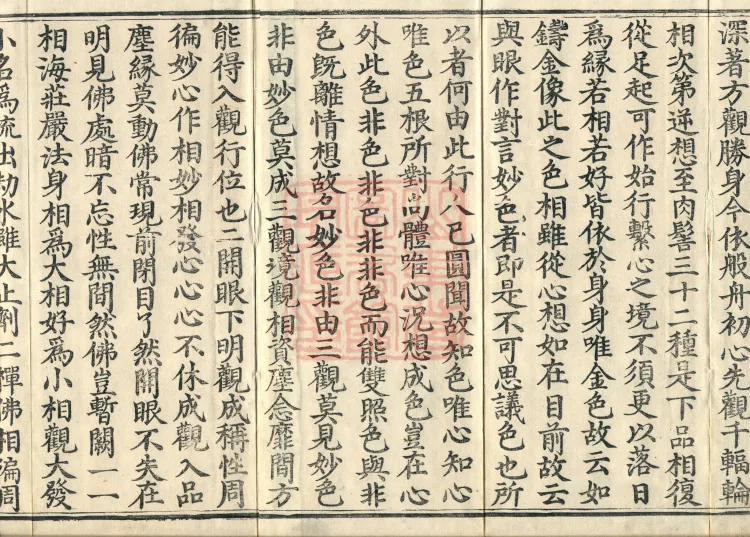 深著方觀勝身今依般舟初心先觀千輻輪
相次第逆想至肉髻三十二種是下品相復
從足起可作始行繫心之境不須更以落日
爲緣若相若好皆依於身身唯金色故云如
鑄金像此之色相雖從心想如在目前故云
與眼作對言妙色者即是不可思議色也所
以者何由此行人已圓聞故知色唯心知心
唯色五根所對尚體唯心況想成色豈在心
外此色非色非色非非色而能雙照色與非
色旣離情想故名妙色非由三觀莫見妙色
非由妙色莫成三觀境觀相資塵念靡間方
能得入觀行位也二開眼下明觀成稱性周
徧妙心作相妙相發心心心不休成觀入品
塵緣莫動佛常現前閉目了然開眼不失在
明見佛處暗不忘性無間然佛豈暫闕一一
相海莊嚴法身相爲大相好爲小相觀大發
小名爲流出劫水雖大止劑二禪佛相徧周